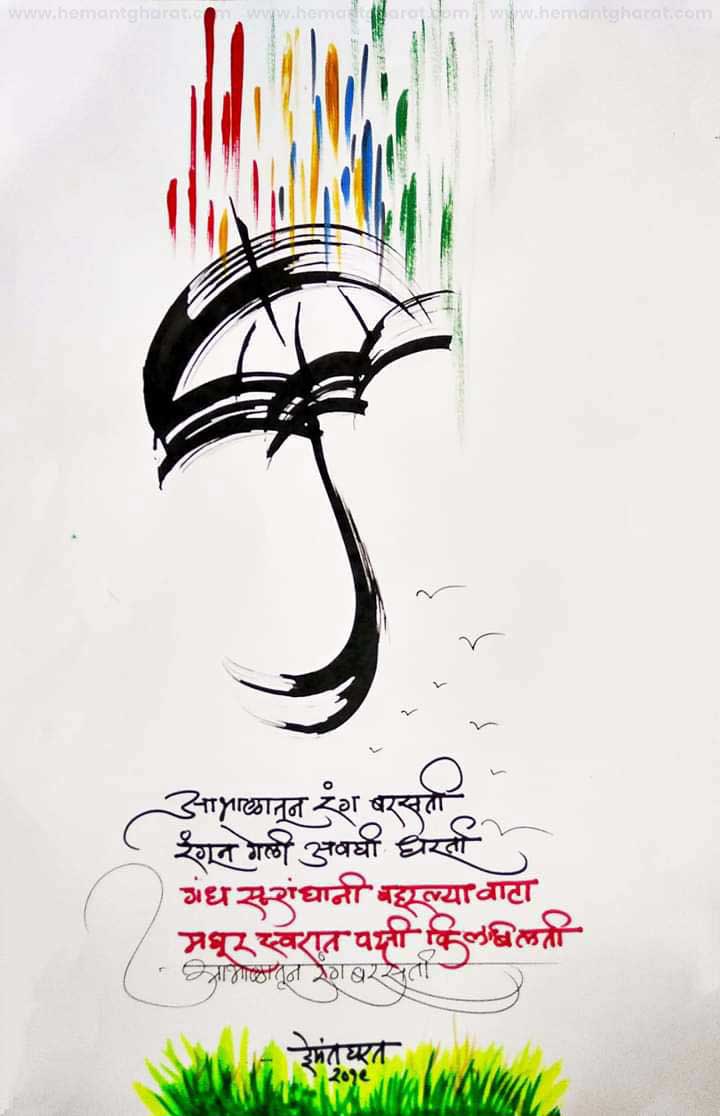 www.hemantgharat.com www.hemantgharat.com www.hemantgharat.com
आभाळातून रंग बरसती
रंगून गेली अवघी धरती
गंध सुगंधानी बहरल्या वाटा
मधूर स्वरात पक्षी किलबिलती
आभाळातून रंग बरसती
हेमंत घरत
२०१९